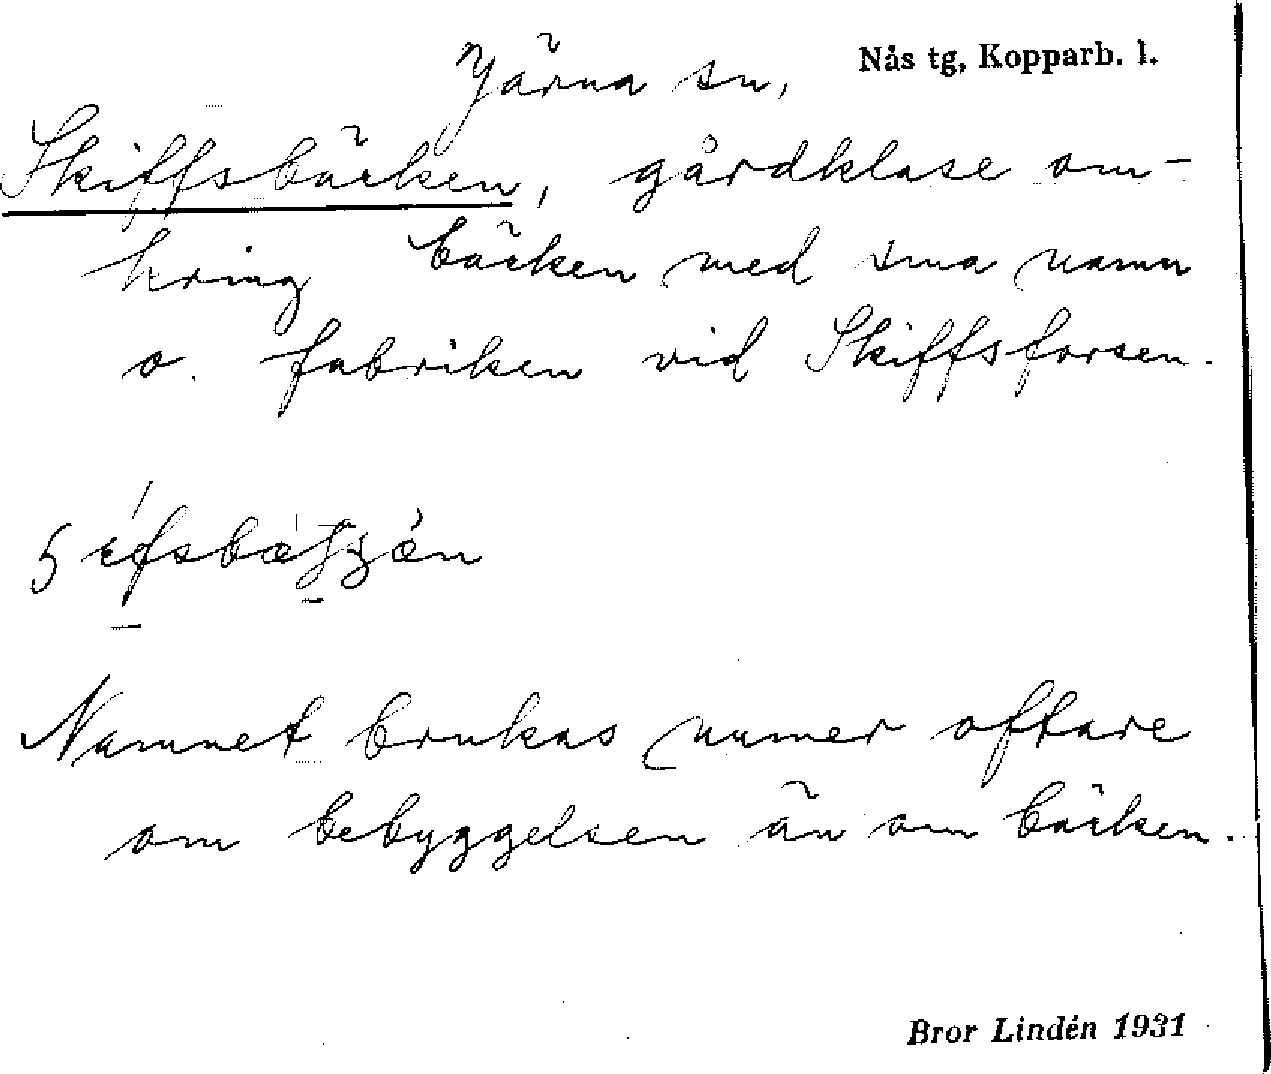 Järna sn, Nås tg, Kopparb. l.
Skiffsbäcken, gårdklase om-
kring bäcken med sma namn
o. fabriken vid Skiffsforsen.
Namnet brukas numer oftare
om bebyggelsen än om bäcken.
Bror Lindén 1931